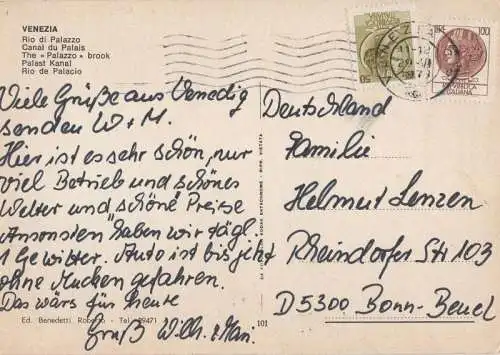 VENEZIA
Rio di Palazzo
Canal du Palais
The « Palazzo » brook
Palast Kanal
Rio de Palacio
Viele Grüße aus Venedig
senden W + M.
Hier ist es sehr schön, nur
viel Betrieb und schönes
Wetter und "schöne" Preise
Ansonsten haben wir tägl.
1 Gewitter. Auto ist bis jetzt
ohne Mucken gefahren.
Das wärs für heute
Gruß Wilh. + Man.
Ed. Benedetti Roberto - Tel. 89471
101
50
100
ITALIANA
VENEZIA
11-12
1979
Deutschland
Familie
Helmut Lenzen
Rheindorfer Str 103
D5300 Bonn-Beuel